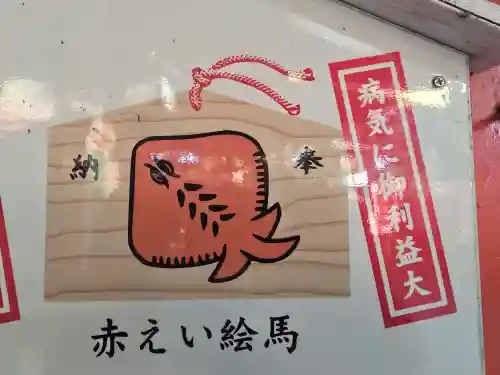 奉
納
病気に御利益大
赤えい絵馬